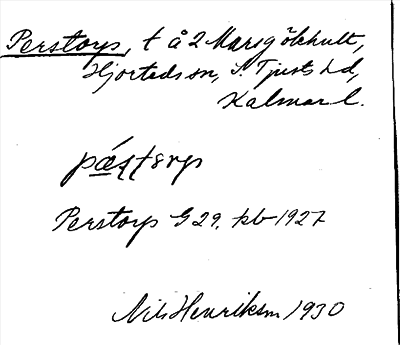 Perstorp, t å 2 Marsgölehult,
Hjorteds sn, S. Tjusts hd,
Kalmar l.
pǽ̣ʂʈɛrp
Perstorp G 29. kb 1927
Nils Henriksson 1930